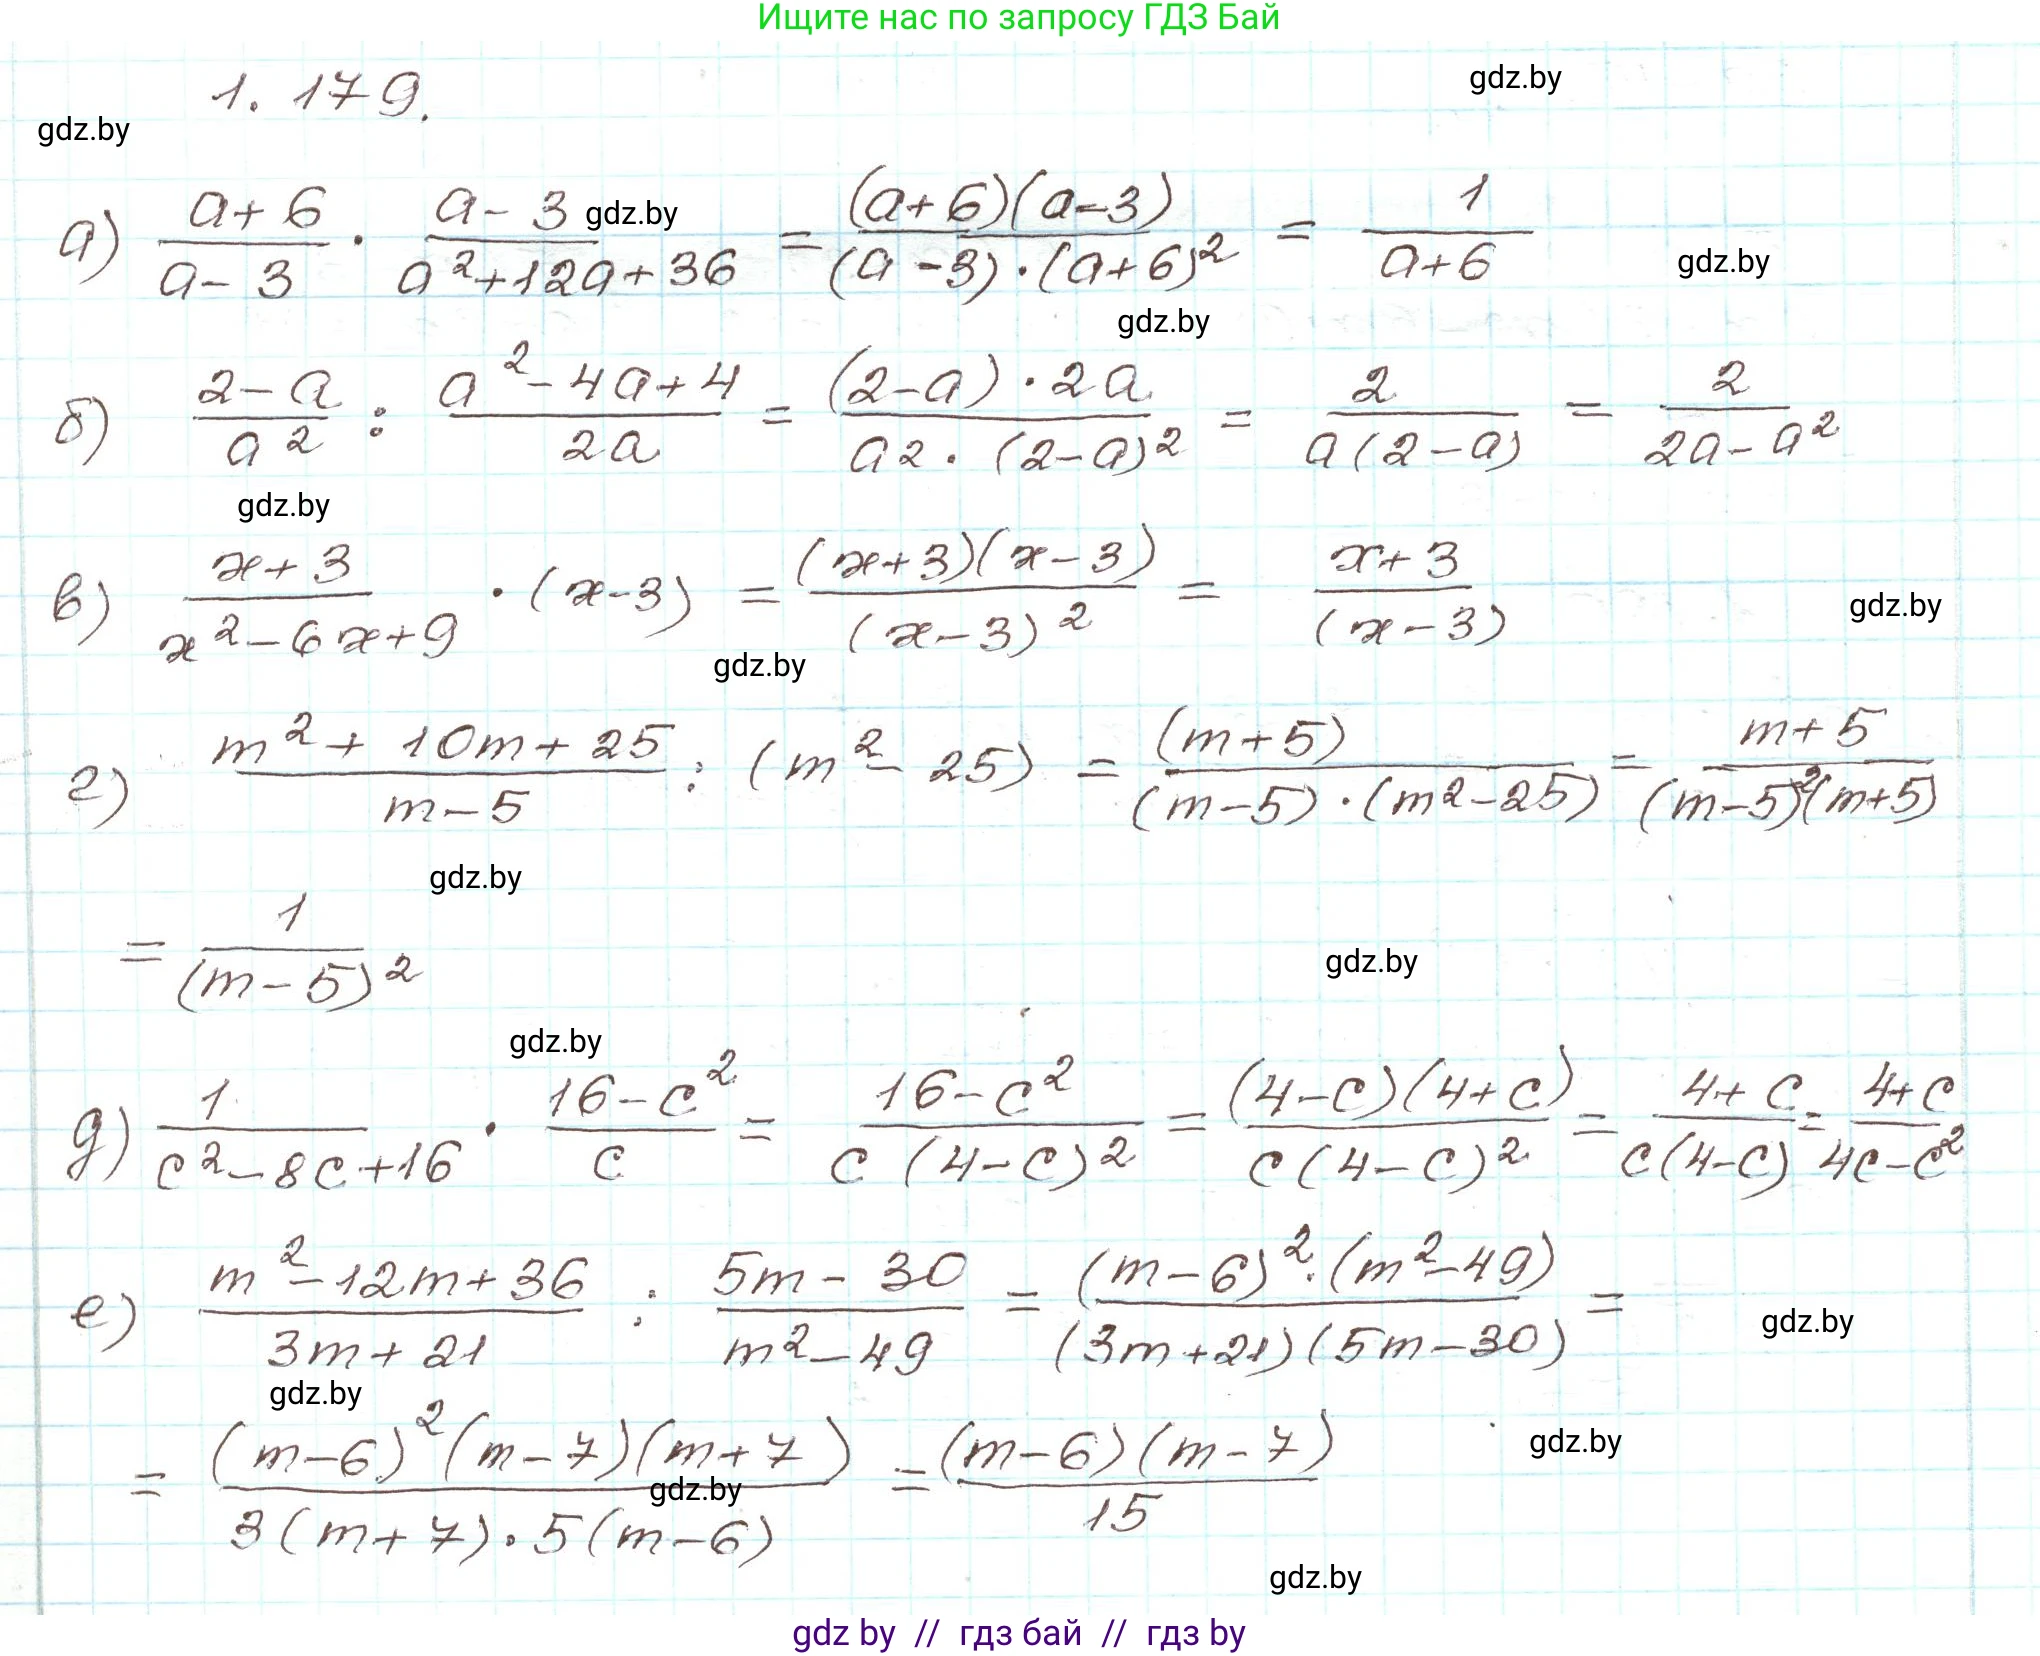 Ищите нас по запросу ГДЗ Бай
1. 179.
gdz.by
gdz.by
а) (a+6)/(a-3) · (a-3)/(a²+12a+36) = ((a+6)(a-3))/((a-3)·(a+6)²) = 1/(a+6)
gdz.by
gdz.by
gdz.by
б) (2-a)/a² : (a²-4a+4)/2a = ((2-a)·2a)/(a2·(2-a)²) = 2/(a(2-a)) = 2/(2a-a²)
gdz.by
в) (x+3)/(x²-6x+9) · (x-3) = ((x+3)(x-3))/(x-3)² = (x+3)/(x-3)
gdz.by
gdz.by
г) (m²+10m+25)/(m-5) : (m²-25) = (m+5)/((m-5)·(m²-25)) = (m+5)/((m-5)²(m+5))
gdz.by
= 1/(m-5)²
gdz.by
gdz.by
д) 1/(c²-8c+16) · (16-c²)/c = (16-c²)/(c(4-c)²) = ((4-c)(4+c))/(c(4-c)²) = (4+c)/(c(4-c)) = (4+c)/(4c-c²)
е) (m²-12m+36)/(3m+21) : (5m-30)/(m²-49) = ((m-6)²·(m²-49))/((3m+21)(5m-30)) =
gdz.by
gdz.by
= ((m-6)²(m-7)(m+7))/(3(m+7)·5(m-6)) = ((m-6)(m-7))/15
gdz.by
gdz.by
gdz.by
gdz by // гдз бай // гдз by